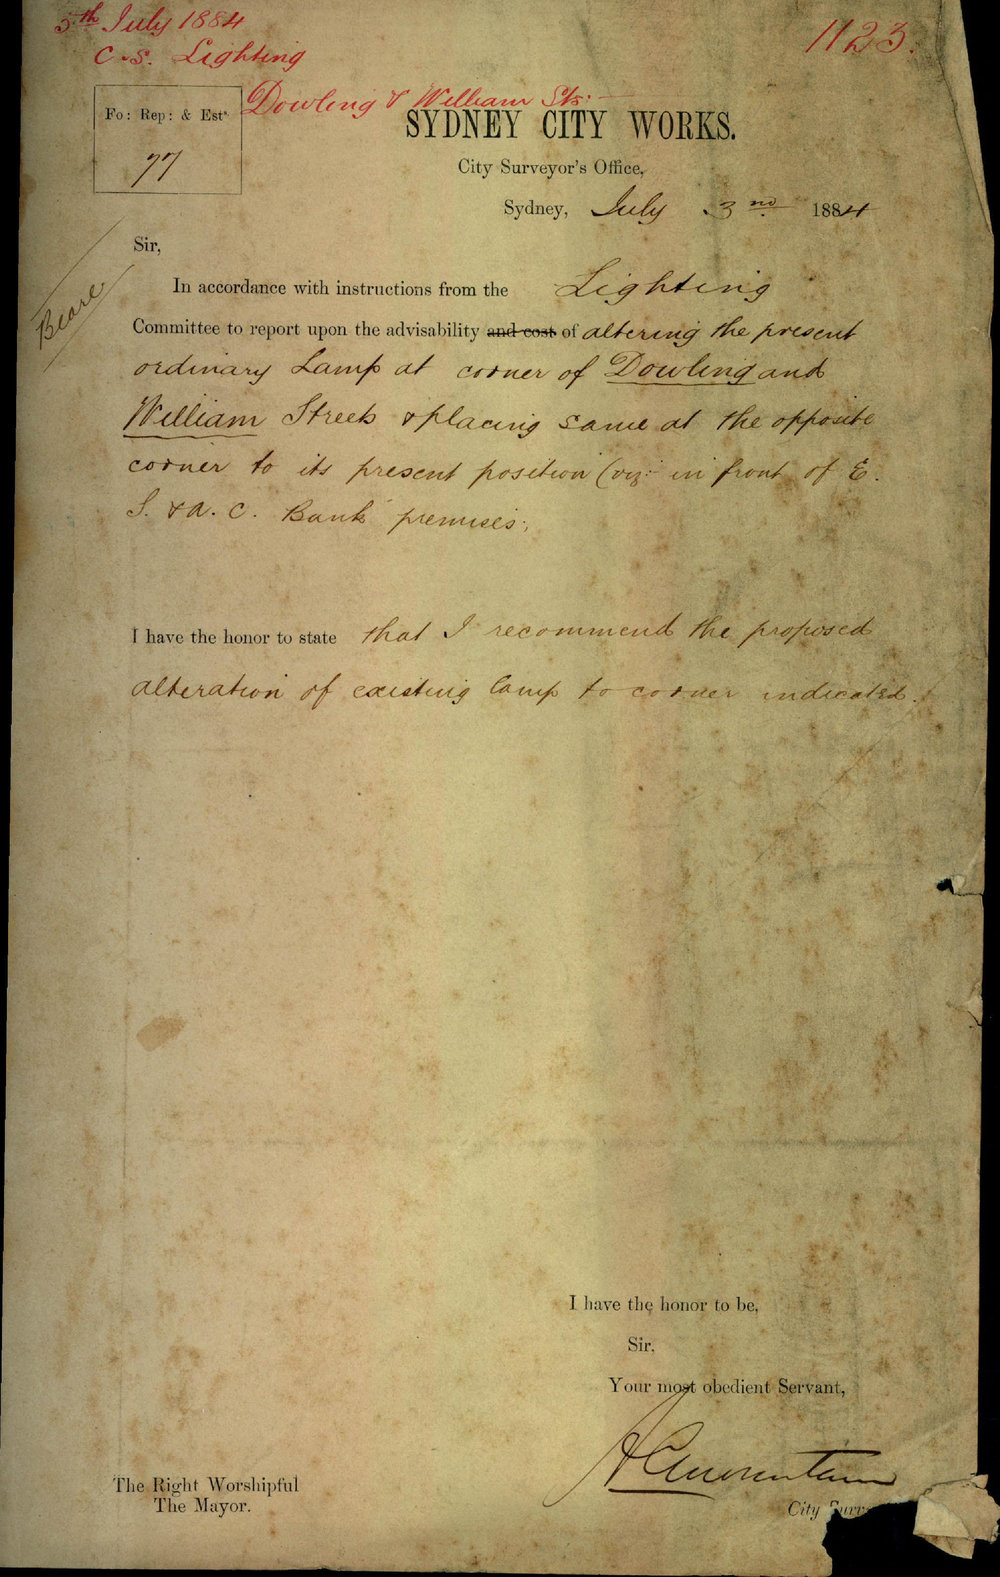 5th July 1884
C.S. Lighting
1123.
Dowling & William Sts.
Fo: Rep: & Ests.
77
SYDNEY CITY WORKS.
City Surveyor's Office,
Sydney, July 3rd 1884
Sir,
Beare
In accordance with instructions from the Lighting
Committee to report upon the advisability and cost of altering the present
ordinary Lamp at corner of Dowling and
William Streets & placing same at the opposite
corner to its present position (viz: in front of E.
S. & A. C. Bank premises;
I have the honor to state that I recommend the proposed
alteration of existing lamp to corner indicated.
I have the honor to be,
Sir,
Your most obedient Servant,
City
The Right Worshipful
The Mayor.